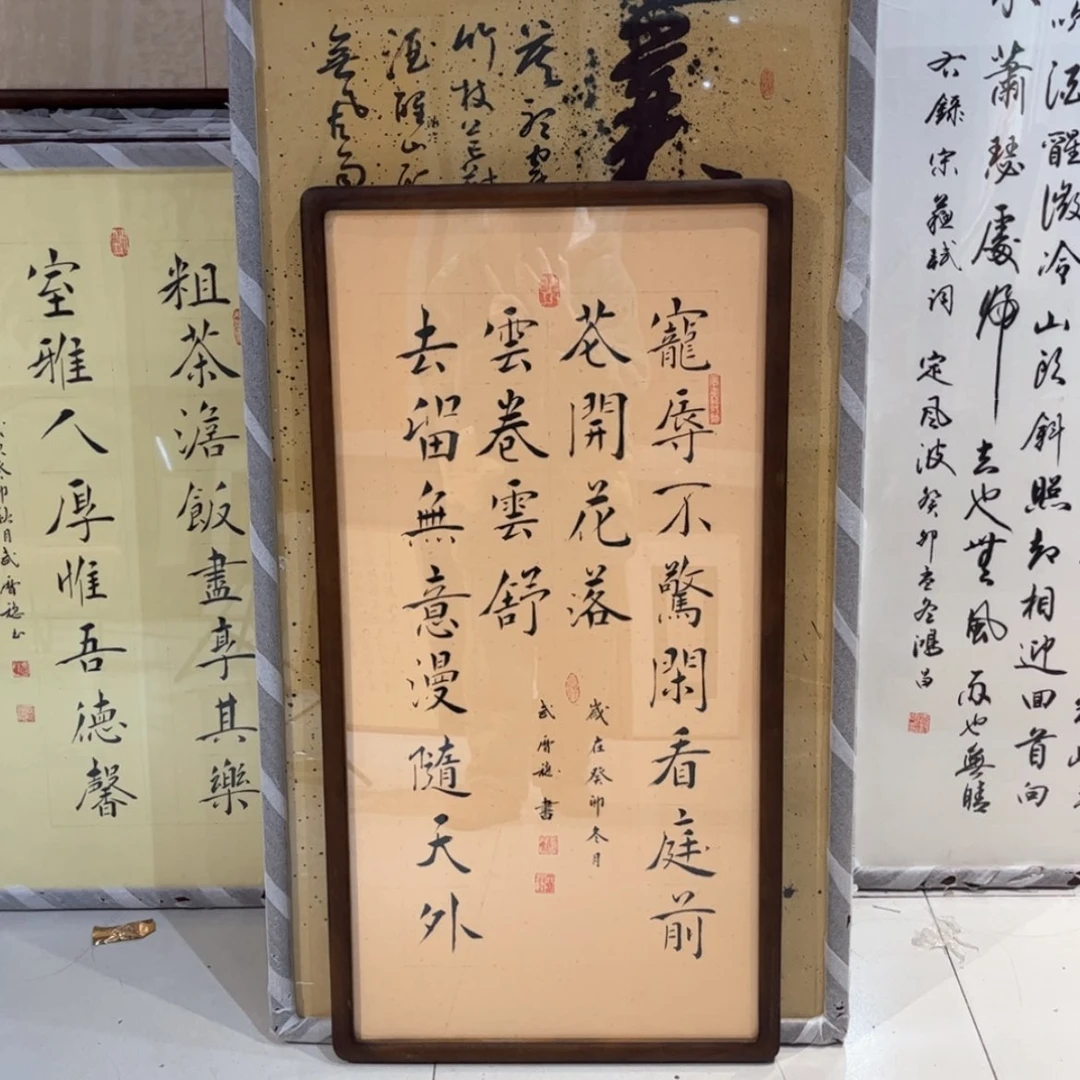 寵辱不驚閑看庭前
花開花落
雲卷雲舒
去留無意漫隨天外
歲在癸卯冬月
武
書
粗茶澹飯盡享其樂
室雅人厚惟吾德馨
癸卯秋月武
竹杖芒
酒醒山
無風
吹酒醒微冷山頭斜照却相迎回首向
蕭瑟處歸去也無風雨也無晴
右錄宋蘇軾詞定風波癸卯孟冬鴻昌